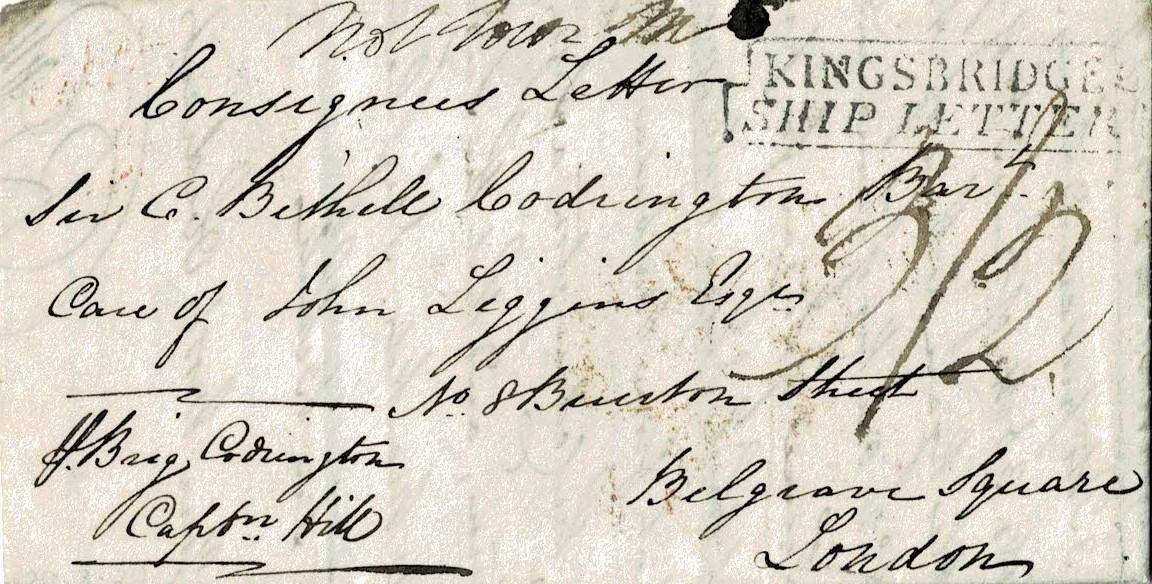 Not
Consignees Letter
KINGSBRIDGE
SHIP LETTER
Sir C. Bethell Codrington Bart.
3/2
Care of John Liggins Esqr.
No 8 Bruton Street
P. Brig Codrington
Captn. Hill
Belgrave Square
London